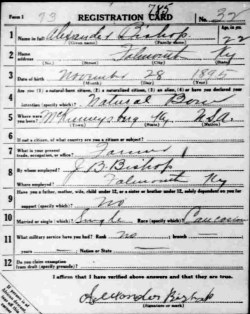 Form 1 REGISTRATION CARD No. 32
1 Name in full Alexander Bishop Age, in yrs. 22
(Given name) (Family name)
2 Home address Falmouth Ky
(No.) (Street) (City) (State)
3 Date of birth November 28 1895
(Month) (Day) (Year)
4 Are you (1) a natural-born citizen, (2) a naturalized citizen, (3) an alien, (4) or have you declared your intention (specify which)? Natural Born
5 Where were you born? Ky. USA
(Town) (State) (Nation)
6 If not a citizen, of what country are you a citizen or subject?
7 What is your present trade, occupation, or office? Farming
8 By whom employed? J B Bishop
Where employed? Falmouth Ky
9 Have you a father, mother, wife, child under 12, or a sister or brother under 12, solely dependent on you for support (specify which)? No
10 Married or single (which)? Single Race (specify which)? Caucasian
11 What military service have you had? Rank No branch
years Nation or State
12 Do you claim exemption from draft (specify grounds)?
I affirm that I have verified above answers and that they are true.
Alexander Bishop
(Signature or mark)